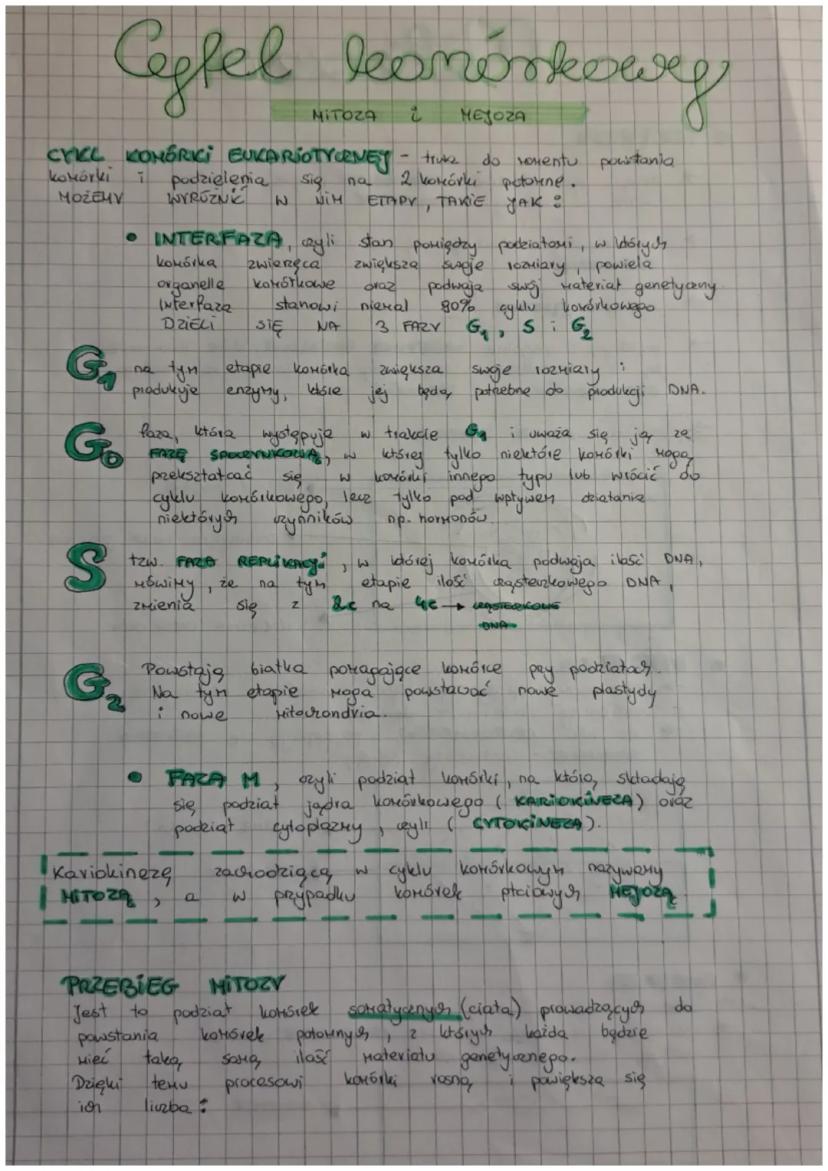 Cykl komórkowy
MITOZA i MEJOZA
CYKL KOMÓRKI EUKARIOTYCZNEJ - trwa do momentu powstania
komórki i podzielenia się na 2 komórki potomne.
MOŻEMY WYRÓŻNIĆ W NIM ETAPY, TAKIE JAK:
• INTERFAZA, czyli stan pomiędzy podziałami, w których
komórka zwierzęca zwiększa swoje rozmiary, powiela
organelle komórkowe oraz podwaja swój materiał genetyczny
Interfaza stanowi niemal 80% cyklu komórkowego
DZIELI SIĘ NA 3 FAZY G1, S i G2
G1 na tym etapie komórka zwiększa swoje rozmiary i
produkuje enzymy, które jej będą potrzebne do produkcji DNA.
G0 faza, która występuje w trakcie G1 i uważa się ją za
FAZĘ SPOCZYNKOWĄ, w której tylko niektóre komórki mogą
przekształcać się w komórki innego typu lub wrócić do
cyklu komórkowego, lecz tylko pod wpływem działania
niektórych czynników np. hormonów.
S tzw. FAZA REPLIKACJI, w której komórka podwaja ilość DNA,
mówimy, że na tym etapie ilość cząsteczkowego DNA,
zmienia się z 2c na 4c → cząsteczkowe
DNA
G2 Powstają białka pomagające komórce przy podziałach.
Na tym etapie mogą powstawać nowe plastydy
i nowe mitochondria.
• FAZA M, czyli podział komórki, na którą składają
się podział jądra komórkowego (KARIOKINEZA) oraz
podział cytoplazmy, czyli (CYTOKINEZA).
Kariokinezę zachodzącą w cyklu komórkowym nazywamy
MITOZĄ, a w przypadku komórek płciowych MEJOZĄ
PRZEBIEG MITOZY
Jest to podział komórek somatycznych (ciała) prowadzących do
powstania komórek potomnych, z których każda będzie
mieć taką samą ilość materiału genetycznego.
Dzięki temu procesowi komórki rosną i powiększa się
ich liczba: